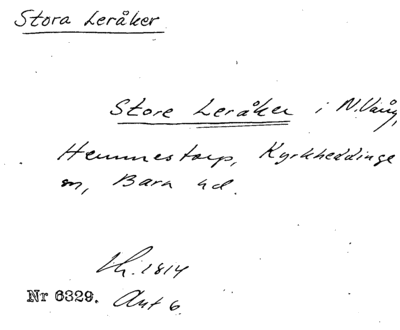 Stora Leråker
Store Leråker i N. Vång,
Hemmestorp, Kyrkheddinge
sn, Bara hd.
Lh. 1814
Nr 6329. Akt 6.